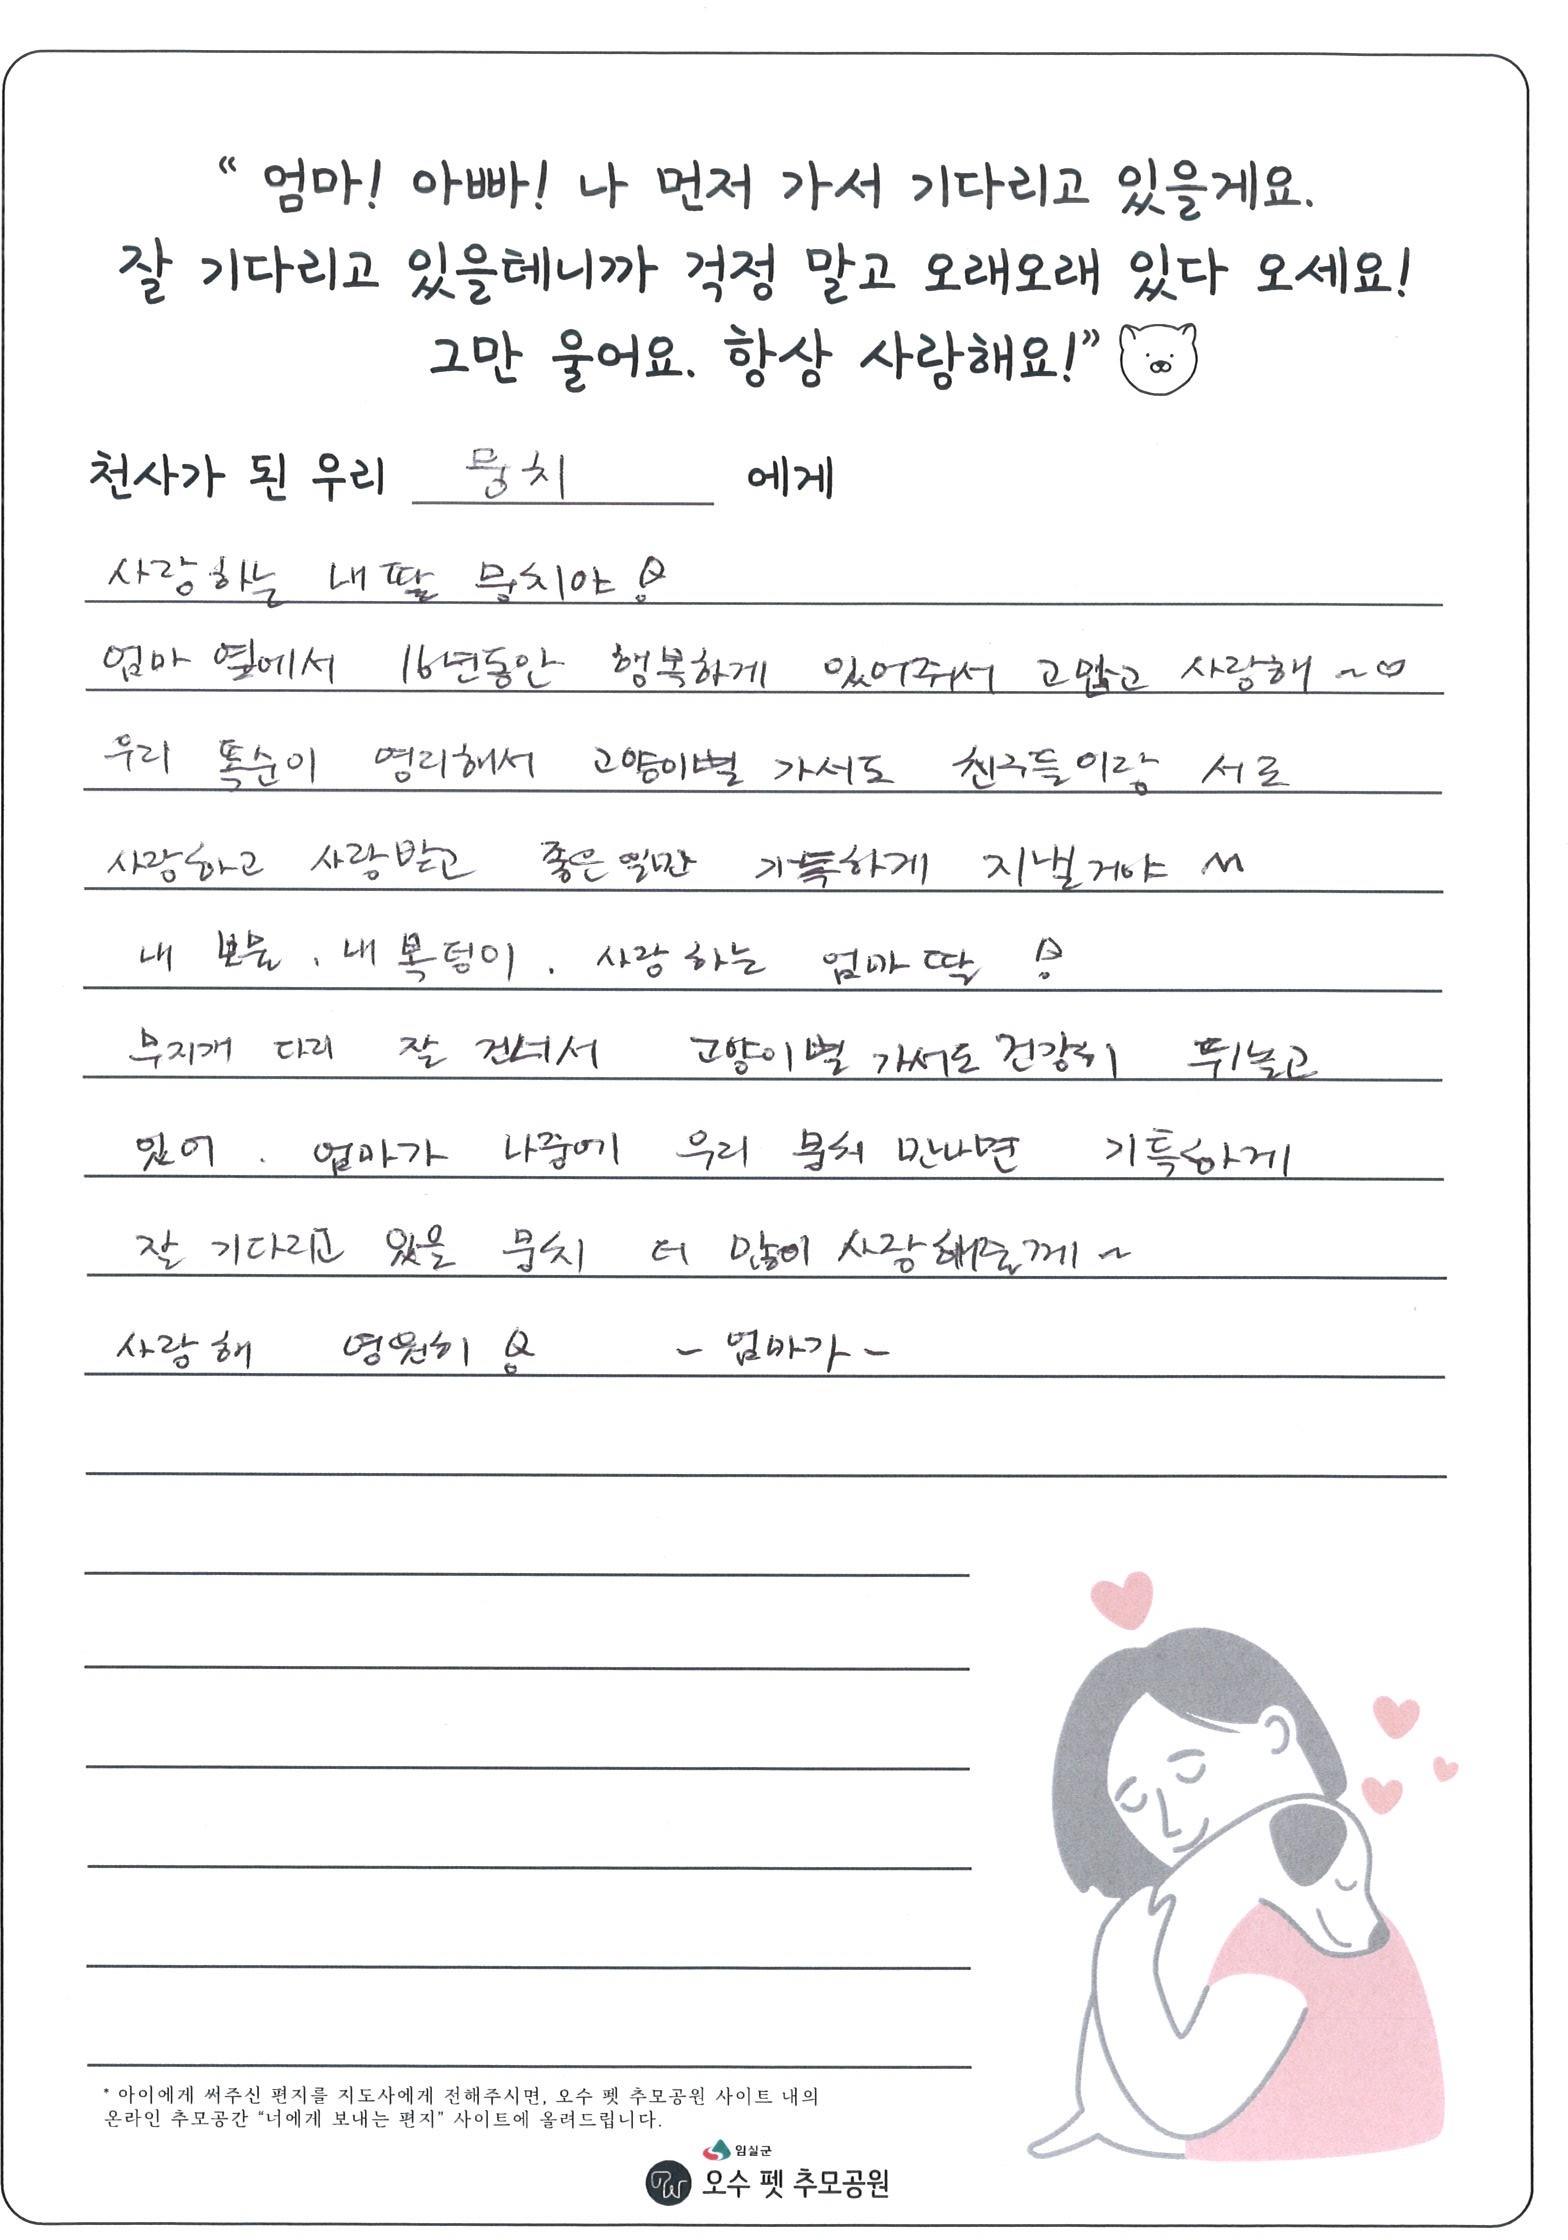 “ 엄마! 아빠! 나 먼저 가서 기다리고 있을게요.
잘 기다리고 있을테니까 걱정 말고 오래오래 있다 오세요!
그만 울어요. 항상 사랑해요!”
천사가 된 우리 뭉치 에게
사랑하는 내 딸 뭉치야!
엄마 옆에서 16년동안 행복하게 있어줘서 고맙고 사랑해 ~♡
우리 똑순이 영리해서 고양이별 가서도 친구들이랑 서로
사랑하고 사랑받고 좋은일만 가득하게 지낼거야 ^^
내 보물, 내 복덩이. 사랑하는 엄마딸!
무지개 다리 잘 건너서 고양이별 가서도 건강히 뛰놀고
있어. 엄마가 나중에 우리 뭉치 만나면 기특하게
잘 기다리고 있을 뭉치 더 많이 사랑해줄께~
사랑해 영원히! - 엄마가 -
* 아이에게 써주신 편지를 지도사에게 전해주시면, 오수 펫 추모공원 사이트 내의
온라인 추모공간 “너에게 보내는 편지” 사이트에 올려드립니다.
임실군
오수 펫 추모공원